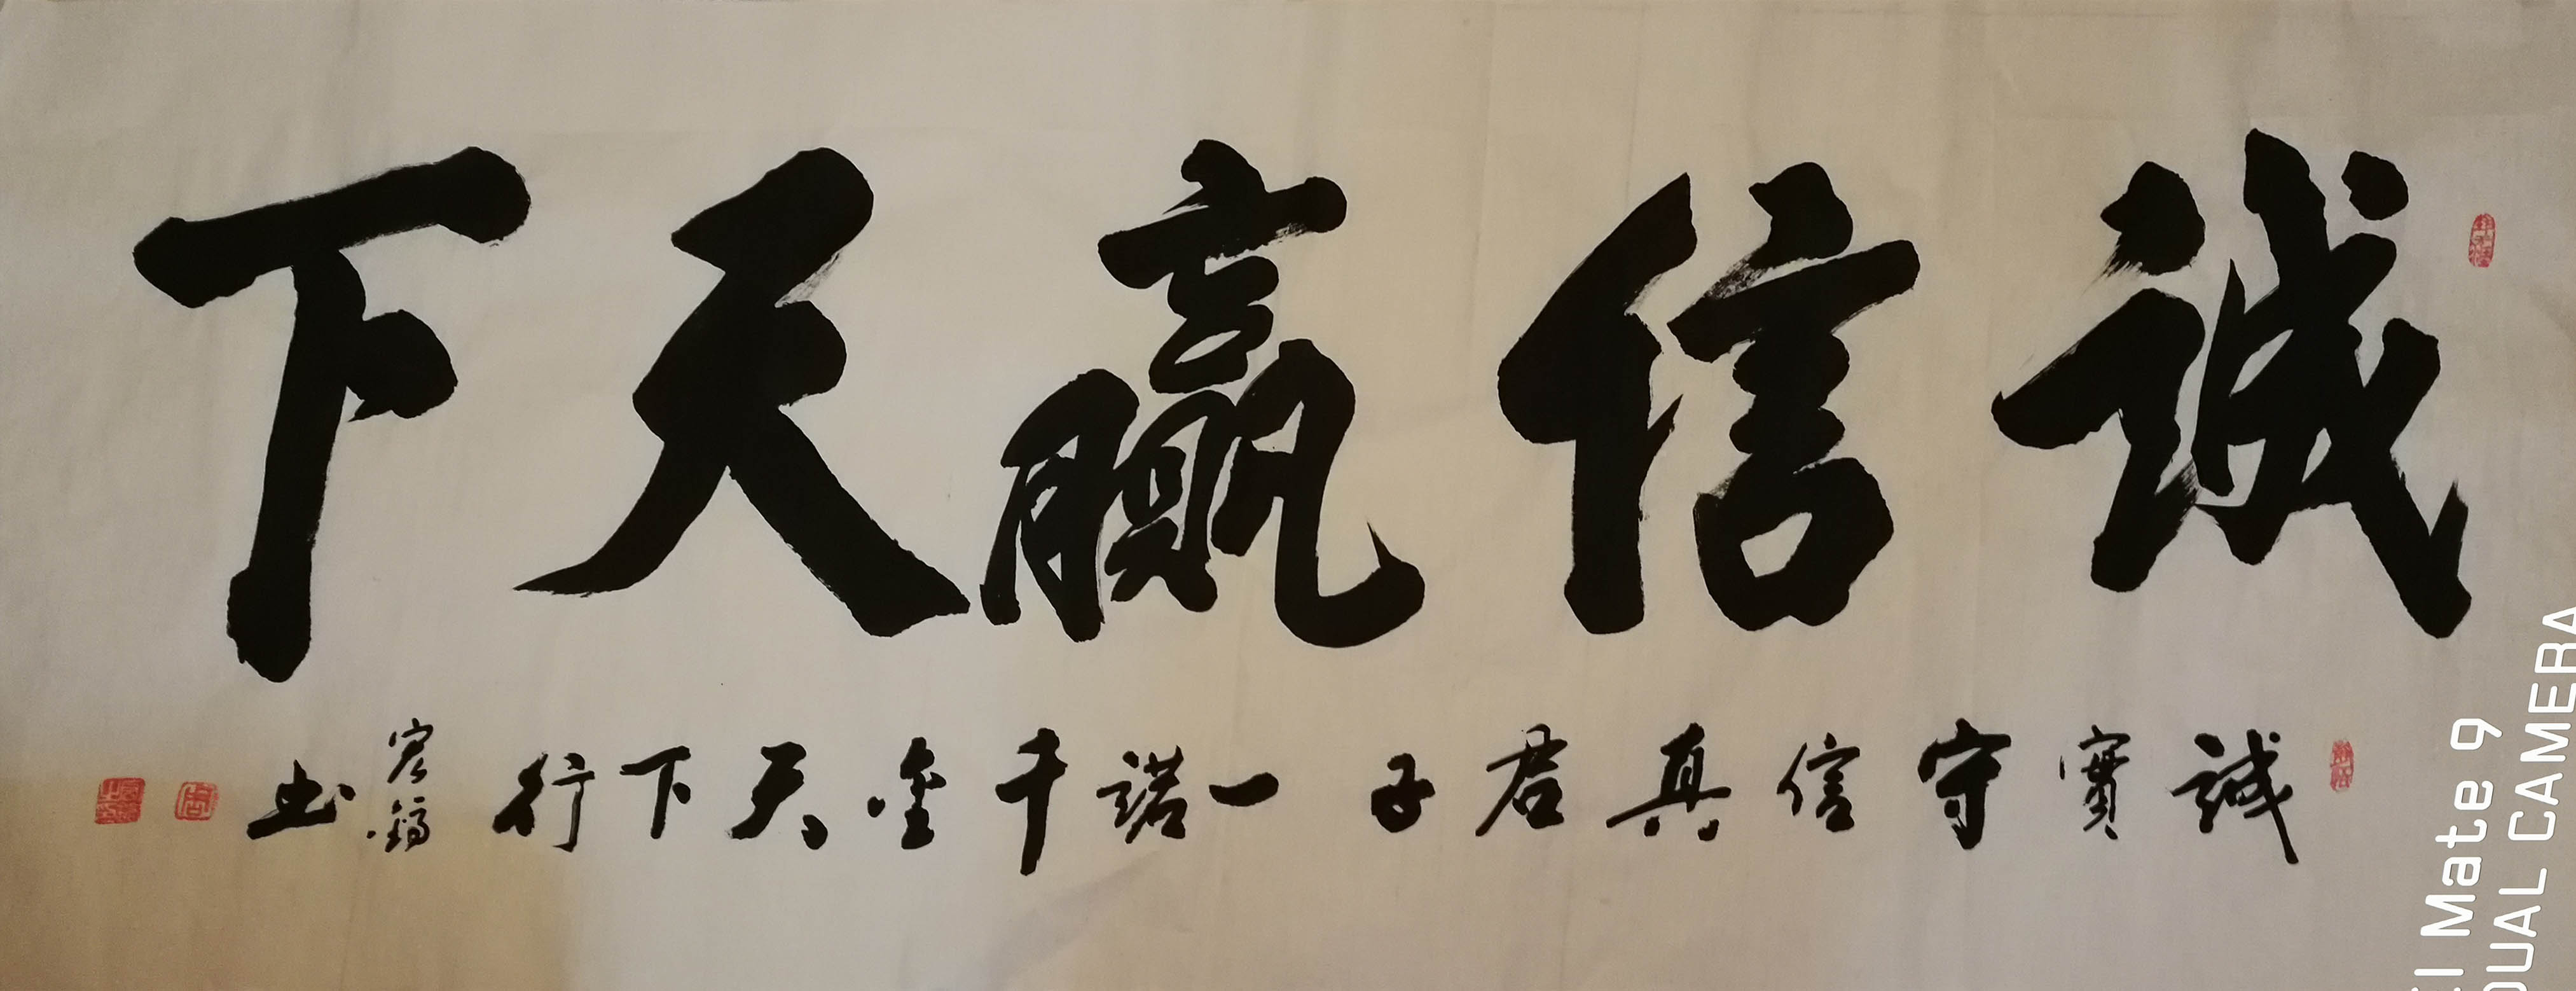 誠信贏天下
誠實守信真君子一諾千金天下行
宏鎬书
I Mate 9
DUAL CAMERA